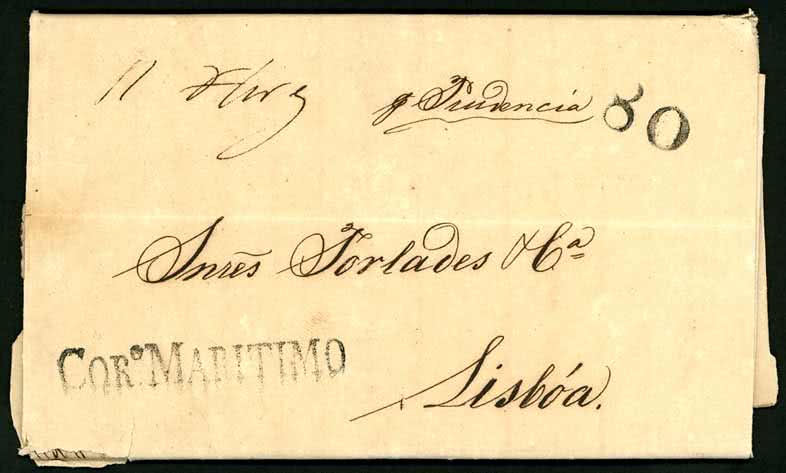 p Prudencia 80
Snrẽs Torlades & Cª
CORº. MARITIMO
Lisbôa.